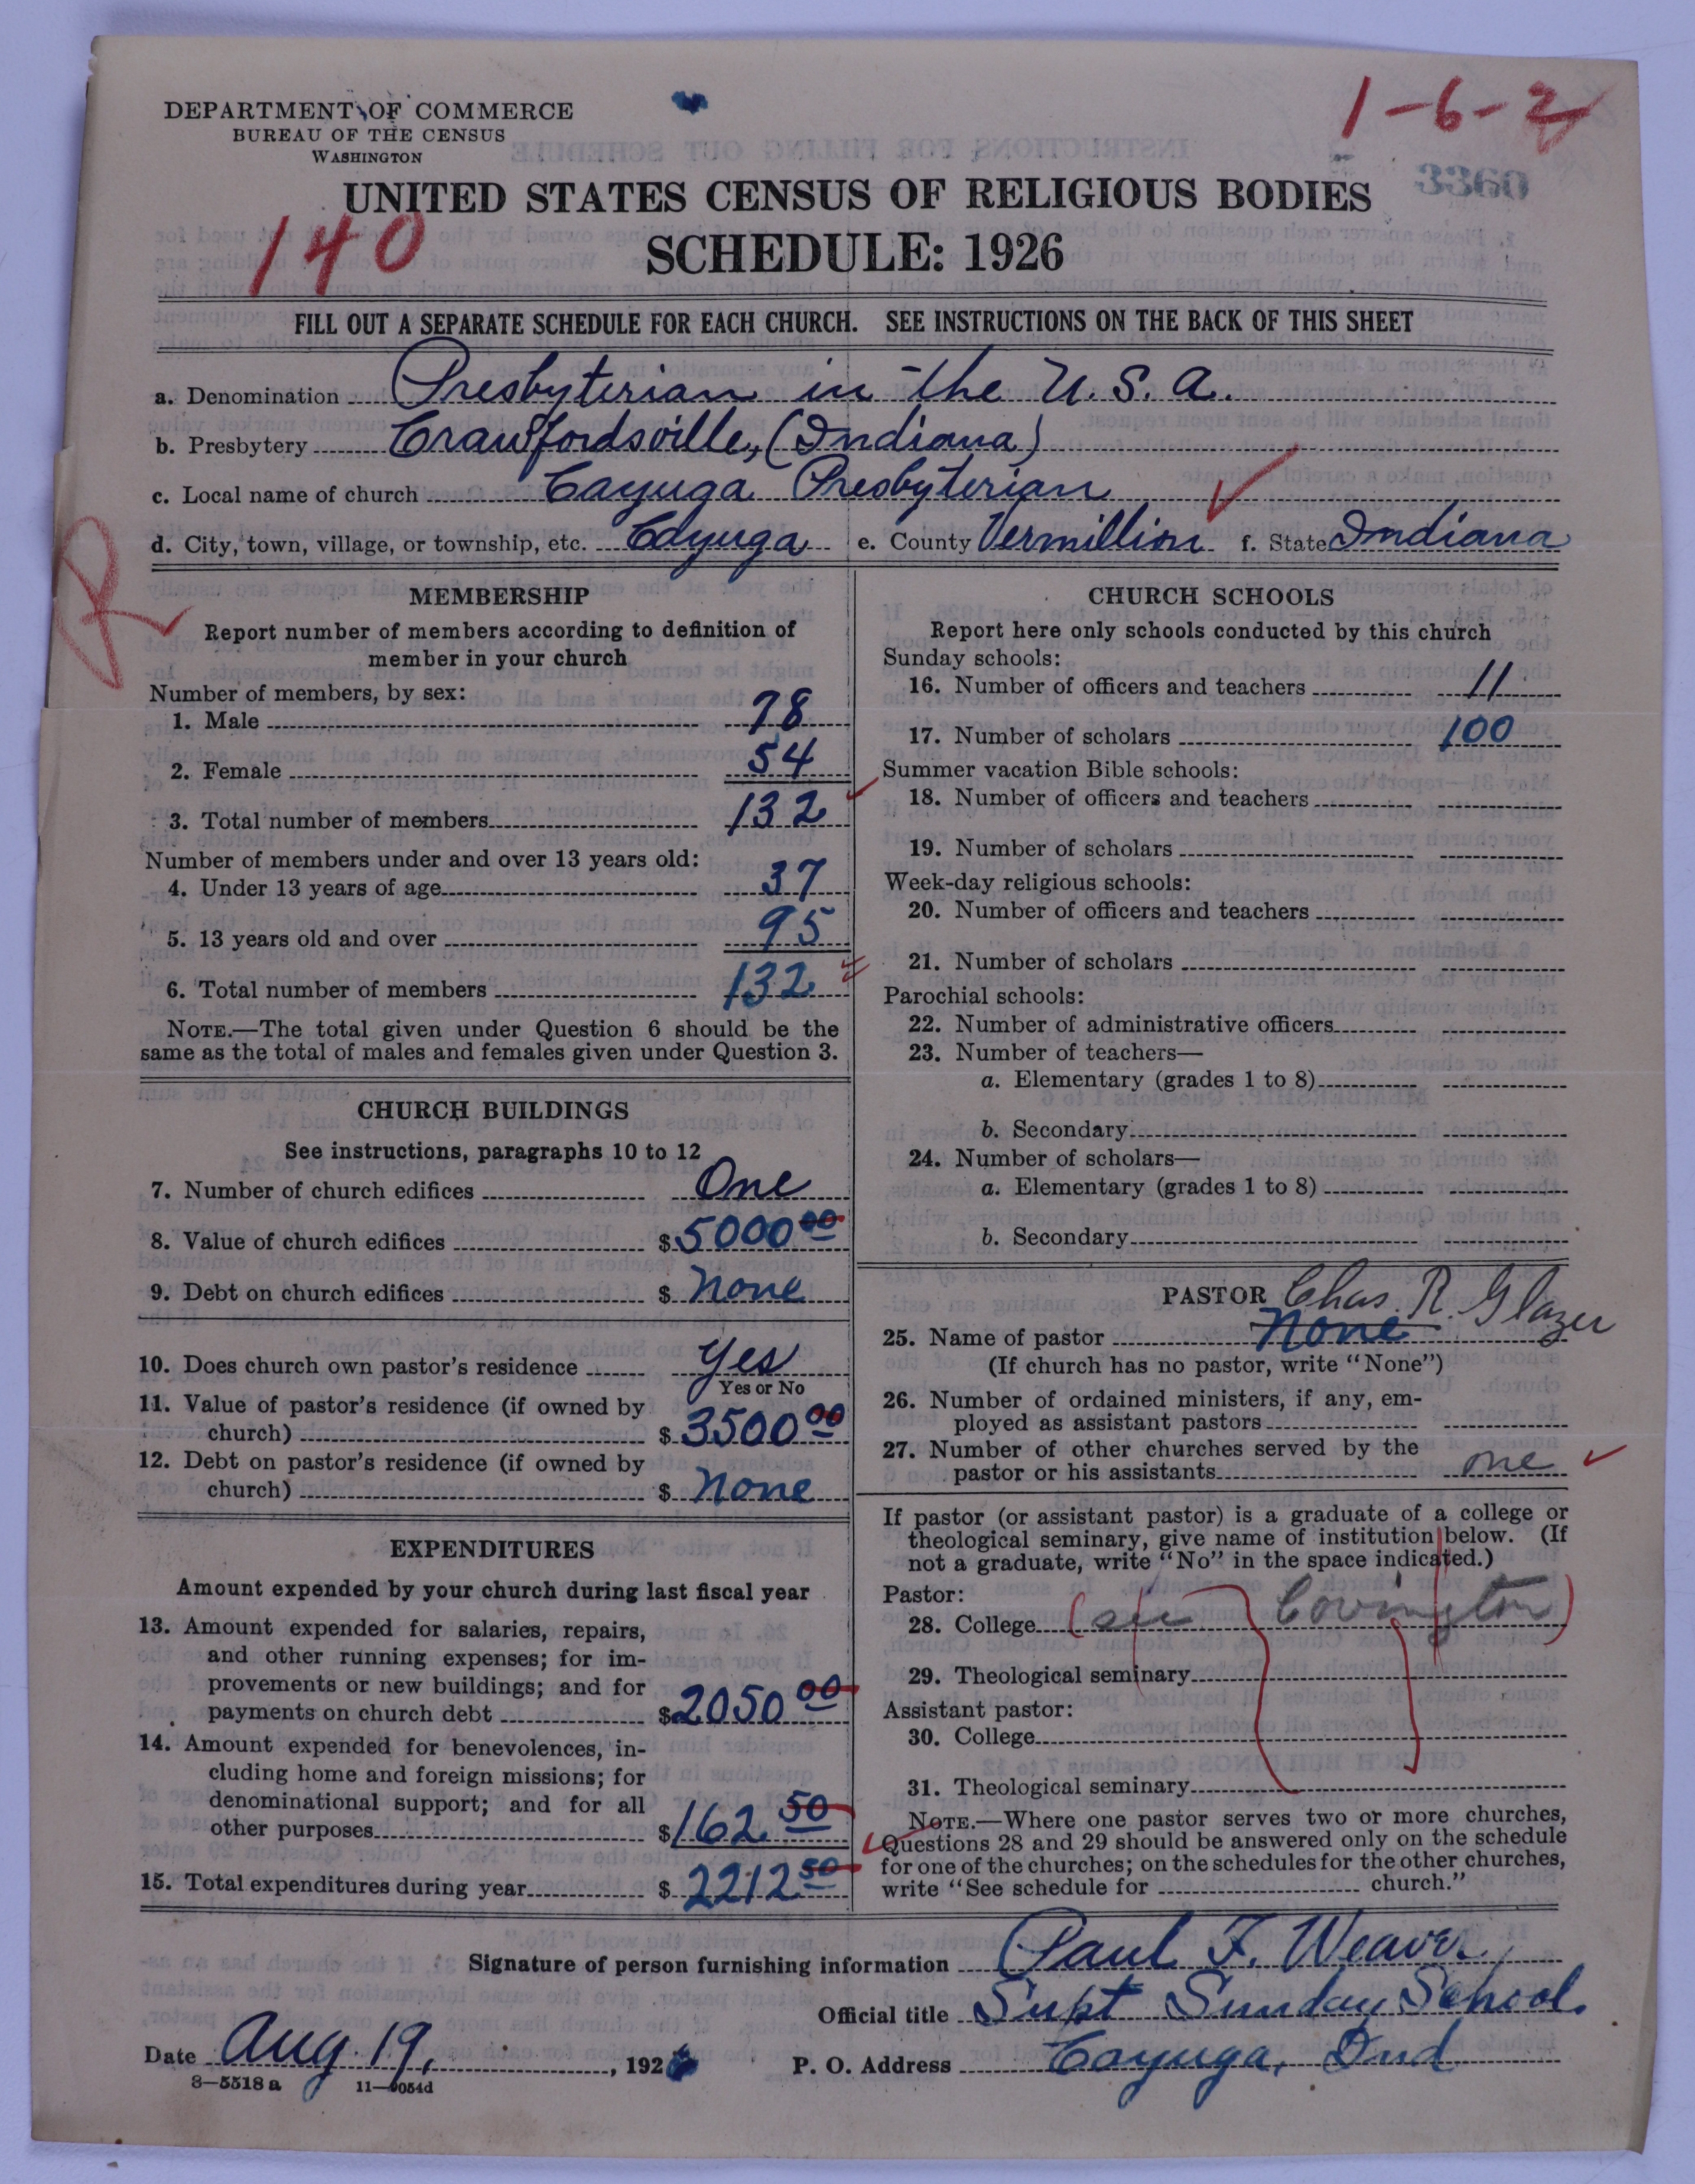 1-6-2
DEPARTMENT OF COMMERCE
BUREAU OF THE CENSUS
WASHINGTON
3360
UNITED STATES CENSUS OF RELIGIOUS BODIES
140
SCHEDULE: 1926
FILL OUT A SEPARATE SCHEDULE FOR EACH CHURCH. SEE INSTRUCTIONS ON THE BACK OF THIS SHEET
a. Denomination Presbyterian in the U.S.A.
b. Presbytery Crawfordsville, (Indiana)
c. Local name of church Cayuga Presbyterian
d. City, town, village, or township, etc. Cayuga e. County Vermillion f. State Indiana
R
MEMBERSHIP
Report number of members according to definition of
member in your church
Number of members, by sex:
1. Male 78
2. Female 54
3. Total number of members 132
Number of members under and over 13 years old:
4. Under 13 years of age 37
5. 13 years old and over 95
6. Total number of members 132
NOTE.—The total given under Question 6 should be the
same as the total of males and females given under Question 3.
CHURCH BUILDINGS
See instructions, paragraphs 10 to 12
7. Number of church edifices One
8. Value of church edifices $ 5000 00
9. Debt on church edifices $ none
10. Does church own pastor's residence Yes
Yes or No
11. Value of pastor's residence (if owned by
church) $ 3500 00
12. Debt on pastor's residence (if owned by
church) $ none
EXPENDITURES
Amount expended by your church during last fiscal year
13. Amount expended for salaries, repairs,
and other running expenses; for im-
provements or new buildings; and for
payments on church debt $ 2050 00
14. Amount expended for benevolences, in-
cluding home and foreign missions; for
denominational support; and for all
other purposes $ 162 50
15. Total expenditures during year $ 2212 50
CHURCH SCHOOLS
Report here only schools conducted by this church
Sunday schools:
16. Number of officers and teachers 11
17. Number of scholars 100
Summer vacation Bible schools:
18. Number of officers and teachers
19. Number of scholars
Week-day religious schools:
20. Number of officers and teachers
21. Number of scholars
Parochial schools:
22. Number of administrative officers
23. Number of teachers—
a. Elementary (grades 1 to 8)
b. Secondary
24. Number of scholars—
a. Elementary (grades 1 to 8)
b. Secondary
PASTOR Chas. R. Glazer
25. Name of pastor none
(If church has no pastor, write "None")
26. Number of ordained ministers, if any, em-
ployed as assistant pastors
27. Number of other churches served by the
pastor or his assistants one
If pastor (or assistant pastor) is a graduate of a college or
theological seminary, give name of institution below. (If
not a graduate, write "No" in the space indicated.)
Pastor:
28. College (see Covington)
29. Theological seminary
Assistant pastor:
30. College
31. Theological seminary
NOTE.—Where one pastor serves two or more churches,
Questions 28 and 29 should be answered only on the schedule
for one of the churches; on the schedules for the other churches,
write "See schedule for church."
Signature of person furnishing information Paul F. Weaver,
Official title Supt Sunday School.
Date Aug. 19, , 1926 P. O. Address Cayuga, Ind
8—5518 a 11—9054d